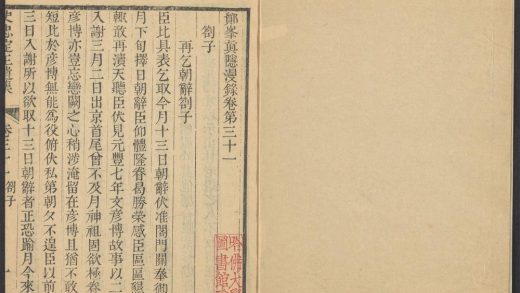 鄮峯眞隱漫錄卷第三十一
劄子
再乞朝辭劄子
臣比具表乞取今月十三日朝辭伏准閤門關奉御
月下旬擇日朝辭臣仰體隆眷曷勝榮感臣區區懇
輒敢再瀆天聽臣伏見元豐七年文彥博故事以二
入謝三月二日出京首尾曾不及月神祖固欲極眷
彥博亦豈忘戀闕之心稍涉淹留在彥博且猶不敢
短此於彥博無能爲役俯伏私第朝夕不遑臣以前
三日入謝所以欲取十三日朝辭者正恐踰月今來
卷三十一 劄子 一
哈佛大
圖書館